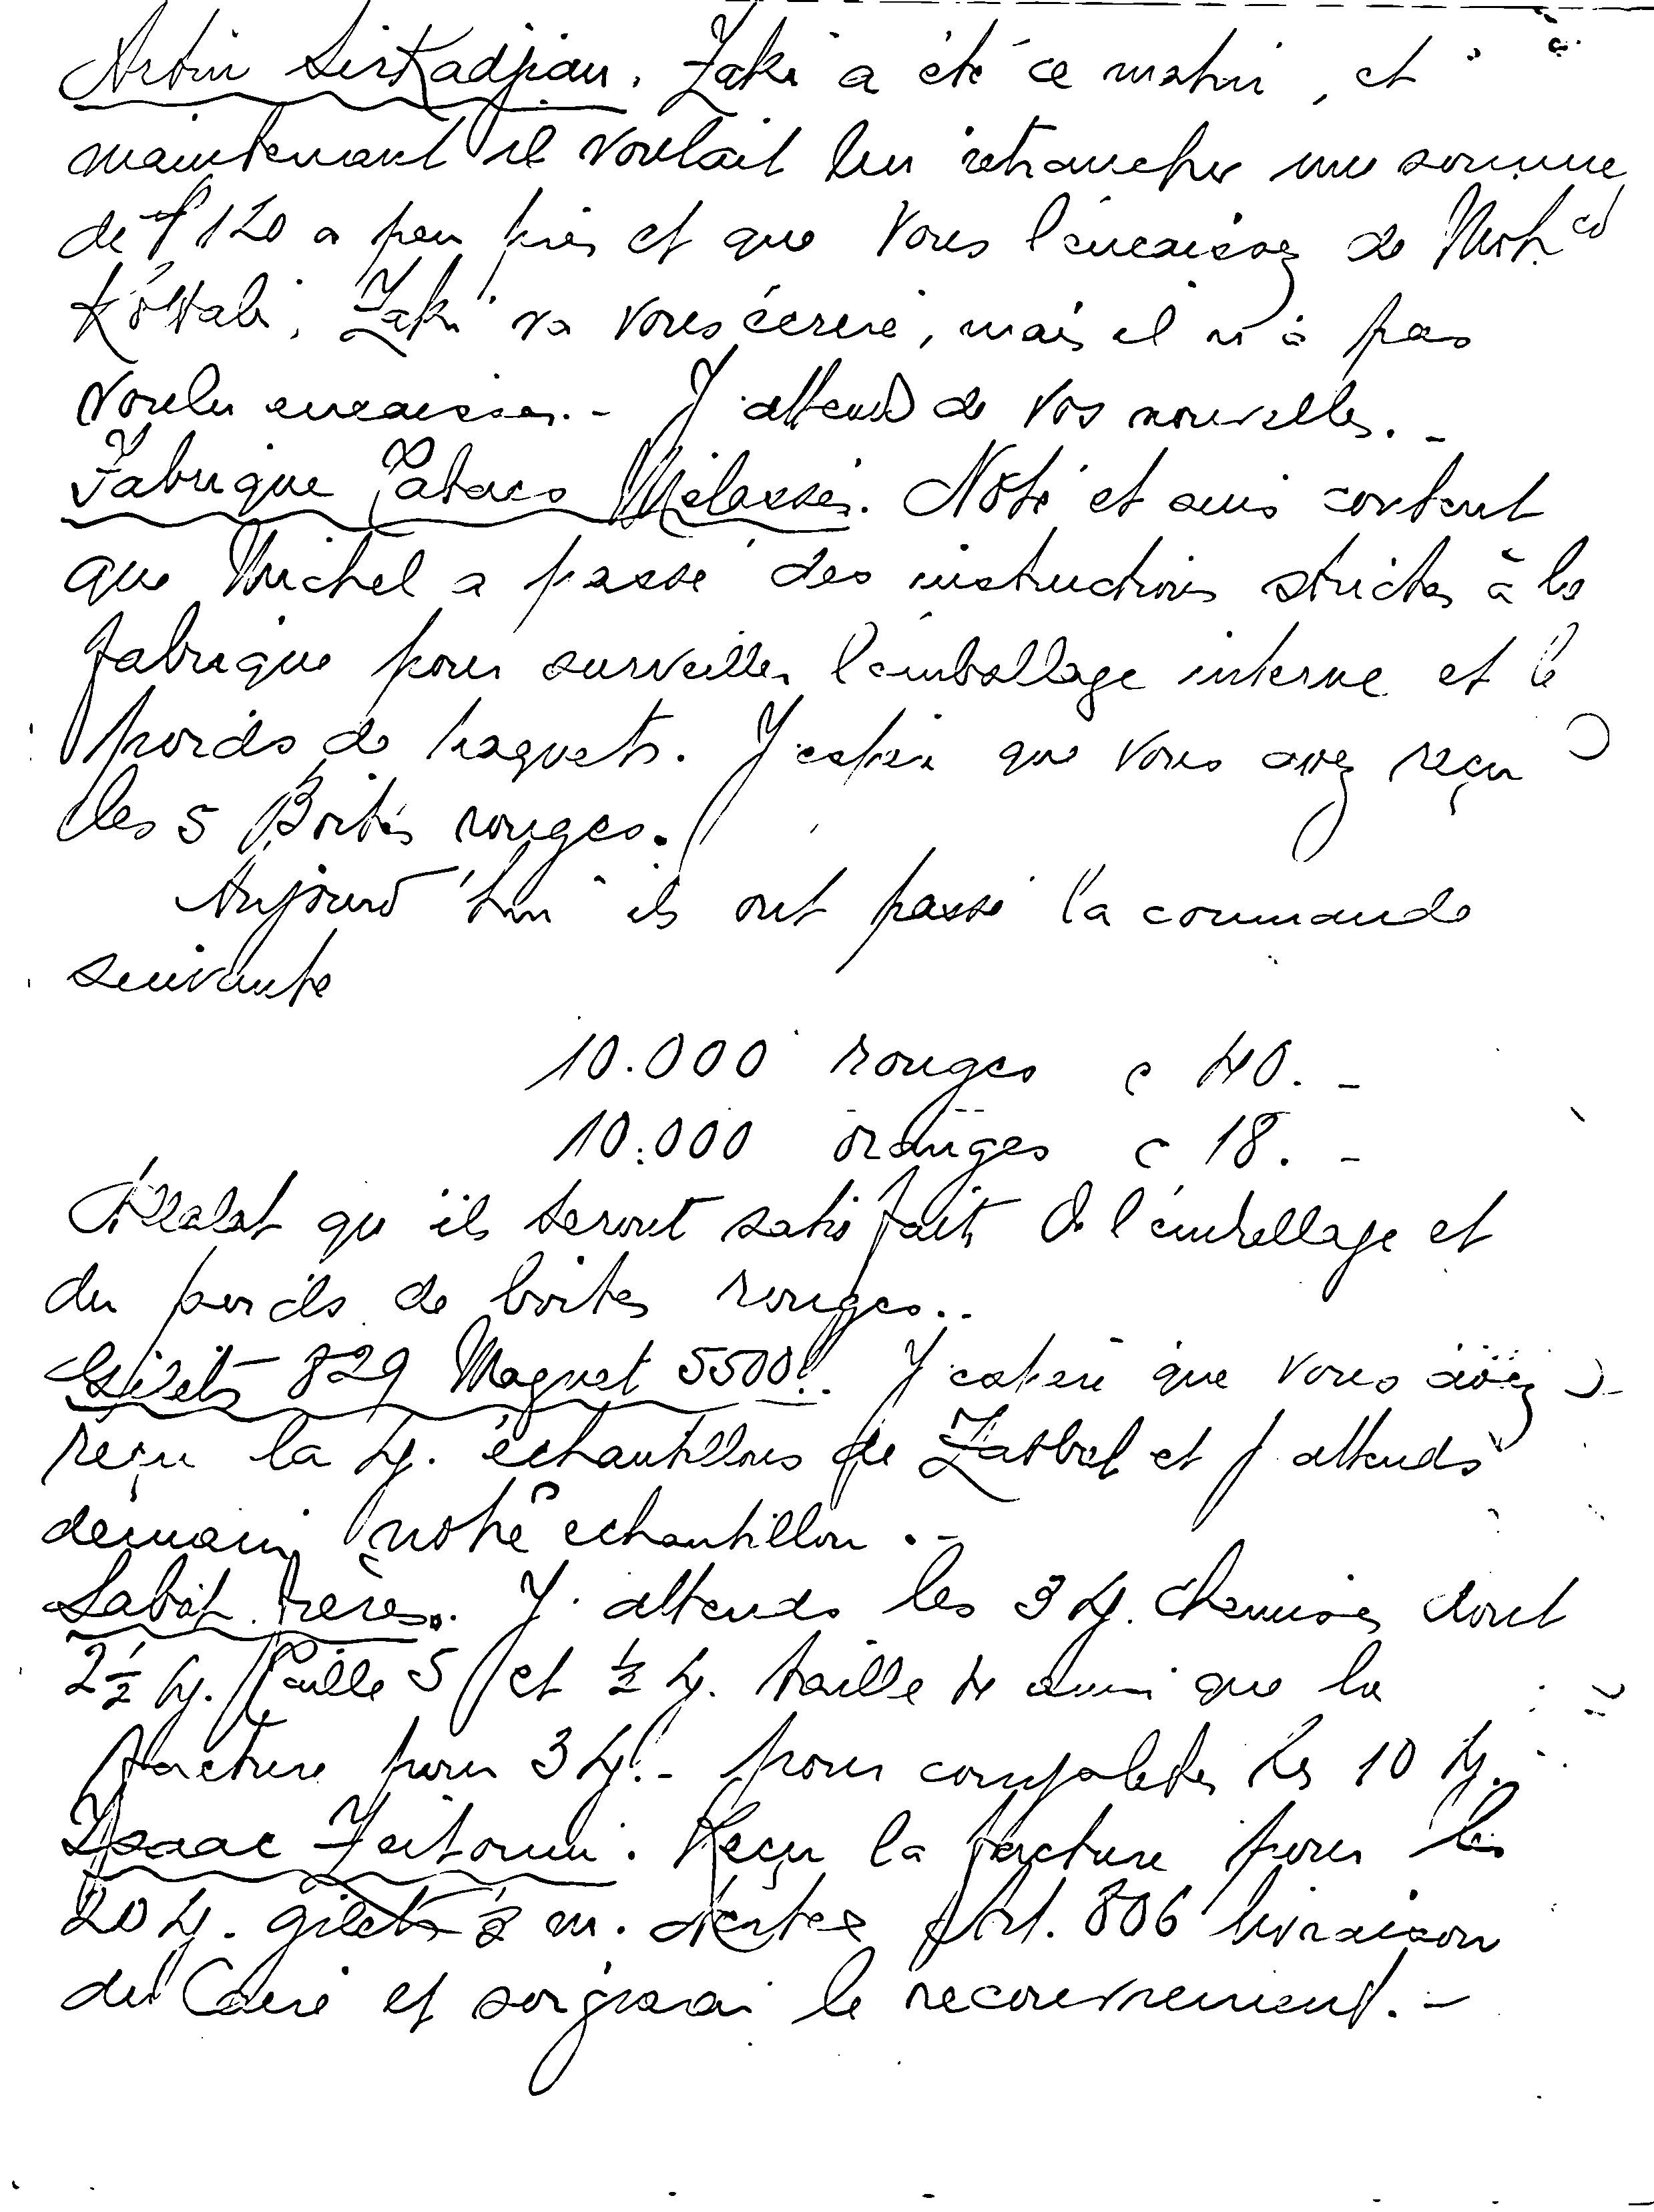 Artin Sirkadjian. Zaki a été ce matin, et
maintenant il voulait lui retrancher une somme
de £ 120 a peu près et que vous l'encaissez de Moh.ed
Kottabi. Zaki va vous écrire, mais il n'a pas
voulu encaisser.- J'attends de vos nouvelles.-
Fabrique Tabacs Mélassés. Noté et suis content
que Michel a passé des instructions strictes à la
fabrique pour surveiller l'emballage interne et le
poids de paquets. J'espère que vous avez reçu
les 5 Boites rouges.
Aujourd'hui ils ont passé la commande
suivante
10.000 rouges c 40.-
10.000 oranges c 18.-
qu'ils seront satisfaits de l'emballage et
du poids de boites rouges..
Gilets 829 Magnet 5500.. J'espère que vous avez
reçu la dz. échantillons de et j'attends
demain notre echantillon.-
Sabat frères. J'attends les 3 dz. chemises dont
2½ dz. Taille 5 et ½ dz. taille 4 ainsi que la
facture pour 3 dz.- pour completer les 10 dz.
Isaac Zeitouni. Reçu la facture pour les
20 dz. gilets ½ m. Art. 806 livraison
du Caire et soignerai le recouvrement.-